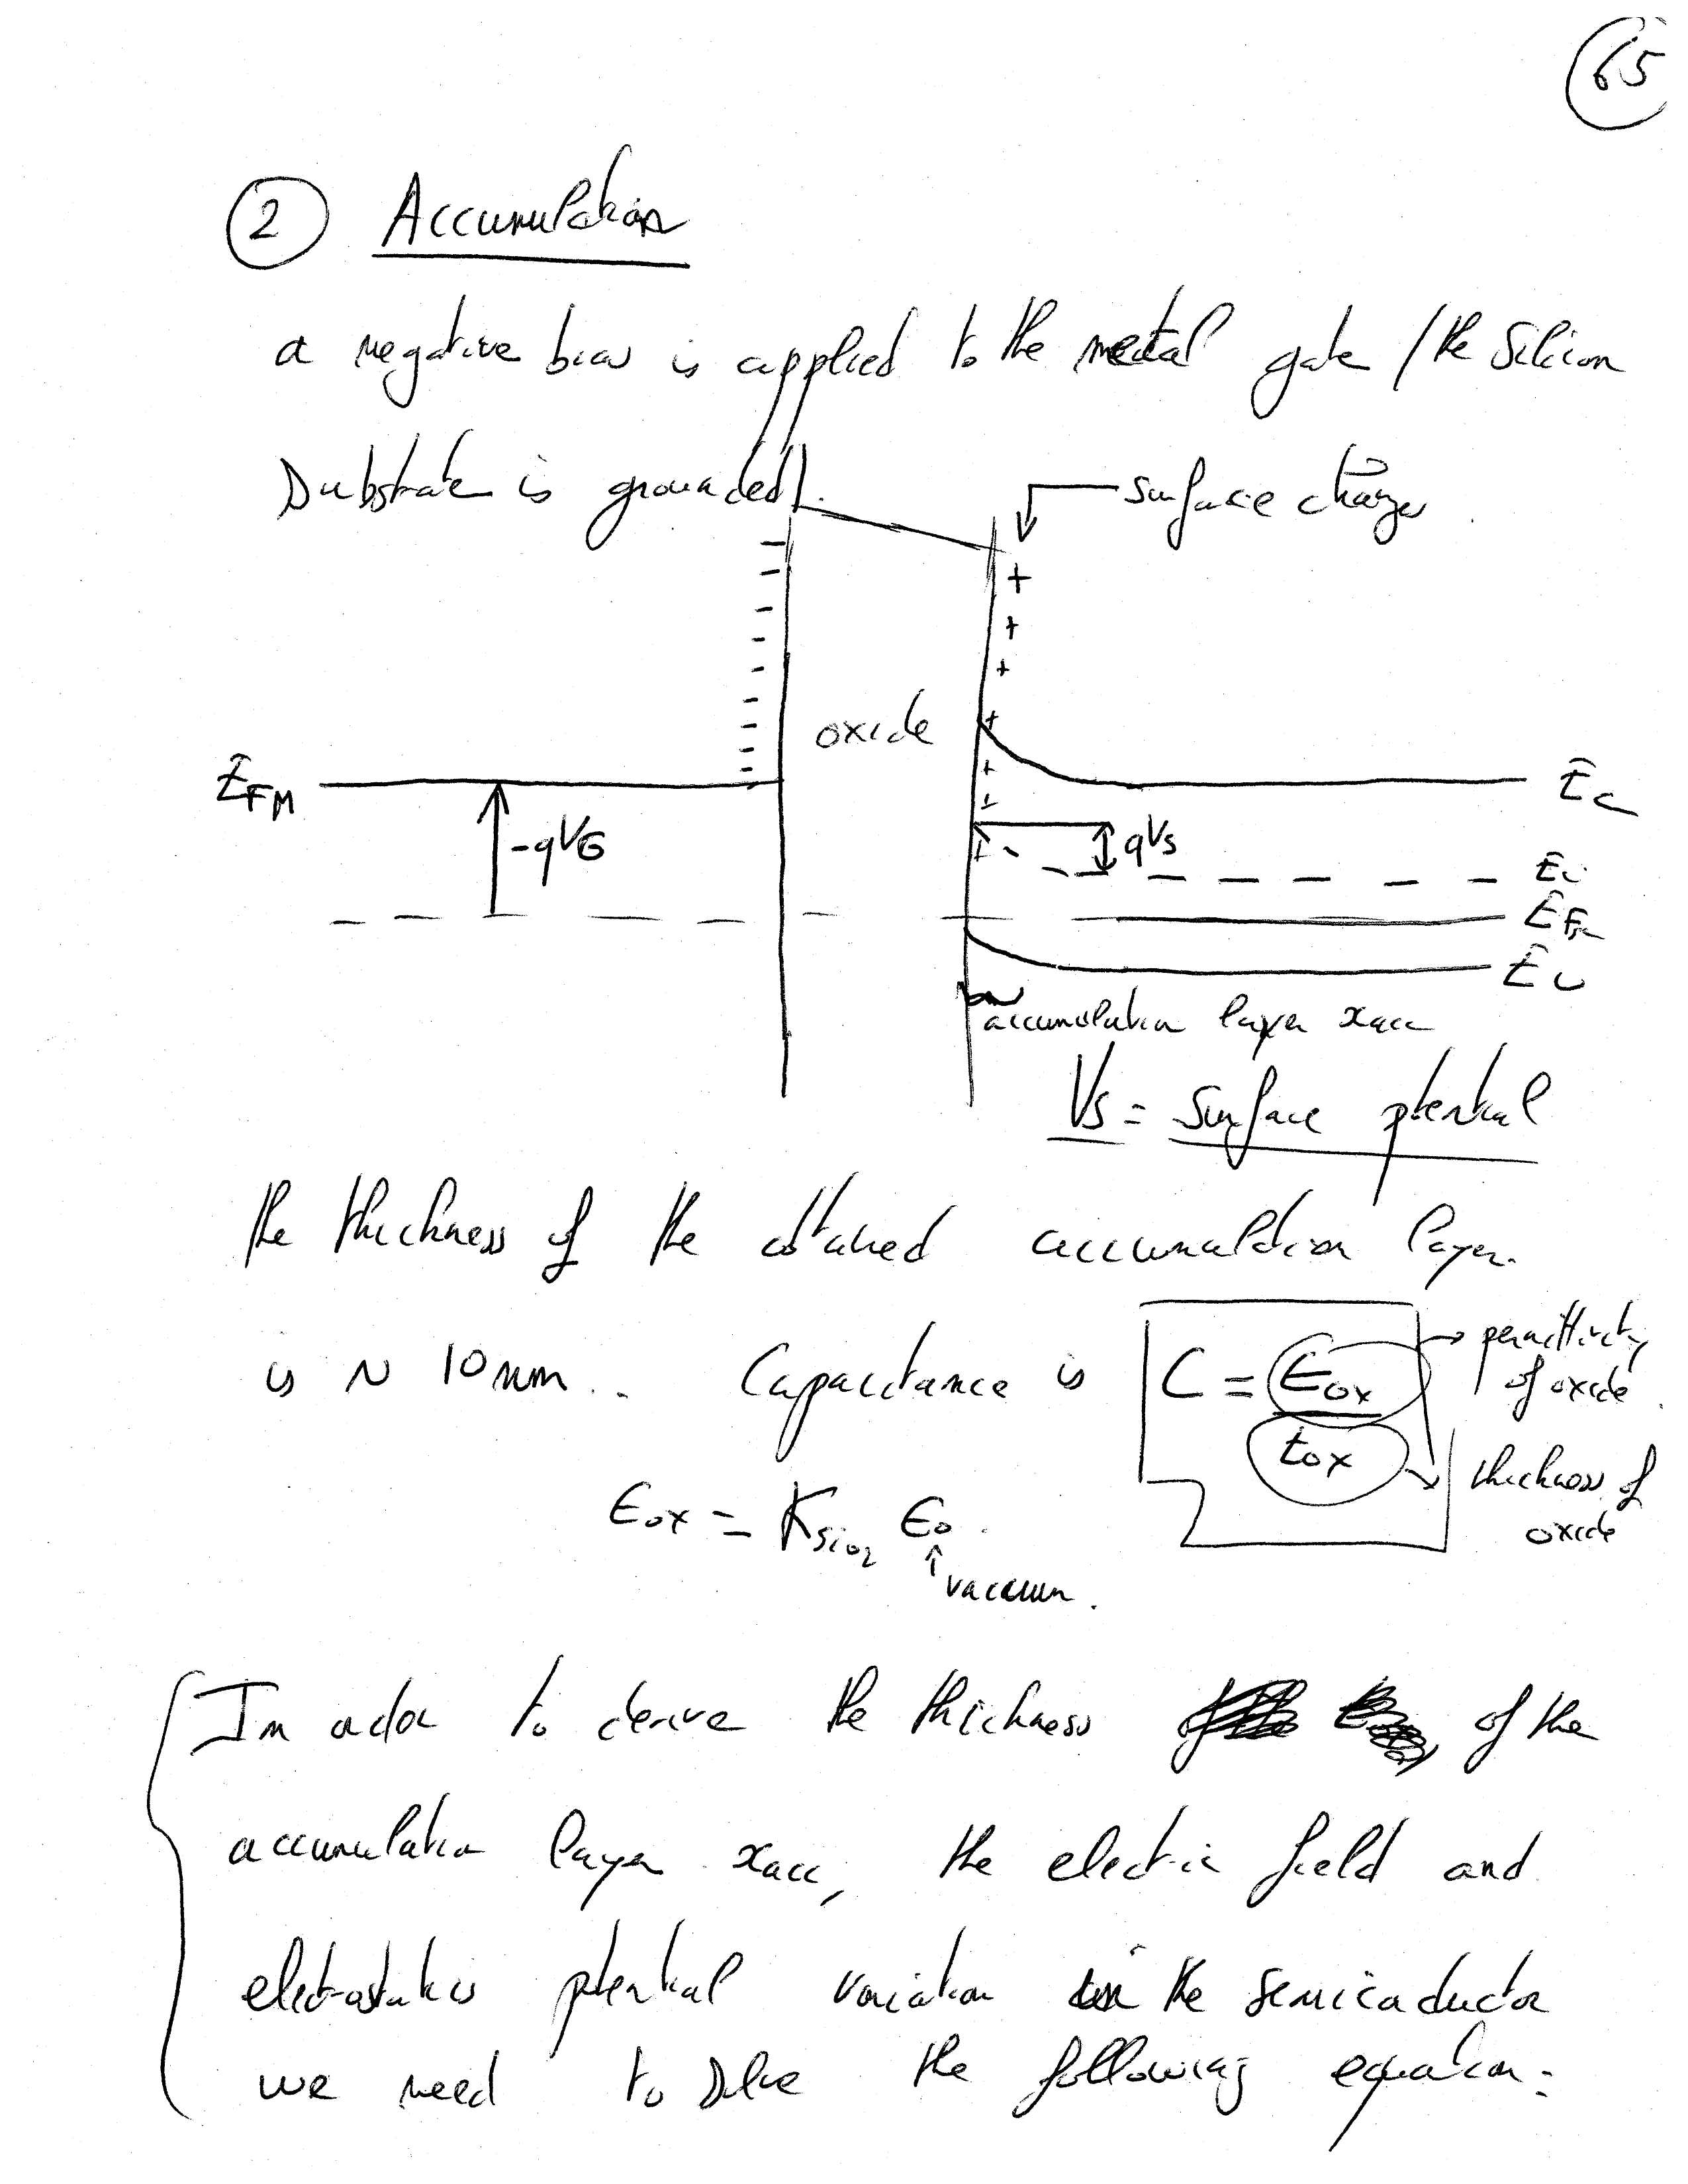 65
2 Accumulation
a negative bias is applied to the metal gate / the Silicon
Substrate is grounded).
surface charges.
oxide
EFM
-qVG
qVs
Ec
Ei
EF
Ev
accumulation layer xacc
Vs = surface potential
the thickness of the obtained accumulation layer
is ~ 10 nm. Capacitance is C = Eox / tox
permittivity
of oxide
thickness of
oxide
Eox = KSiO2 Eo.
vacuum.
In order to derive the thickness of the
accumulation layer xacc, the electric field and
electrostatic potential variation in the semiconductor
we need to solve the following equation: